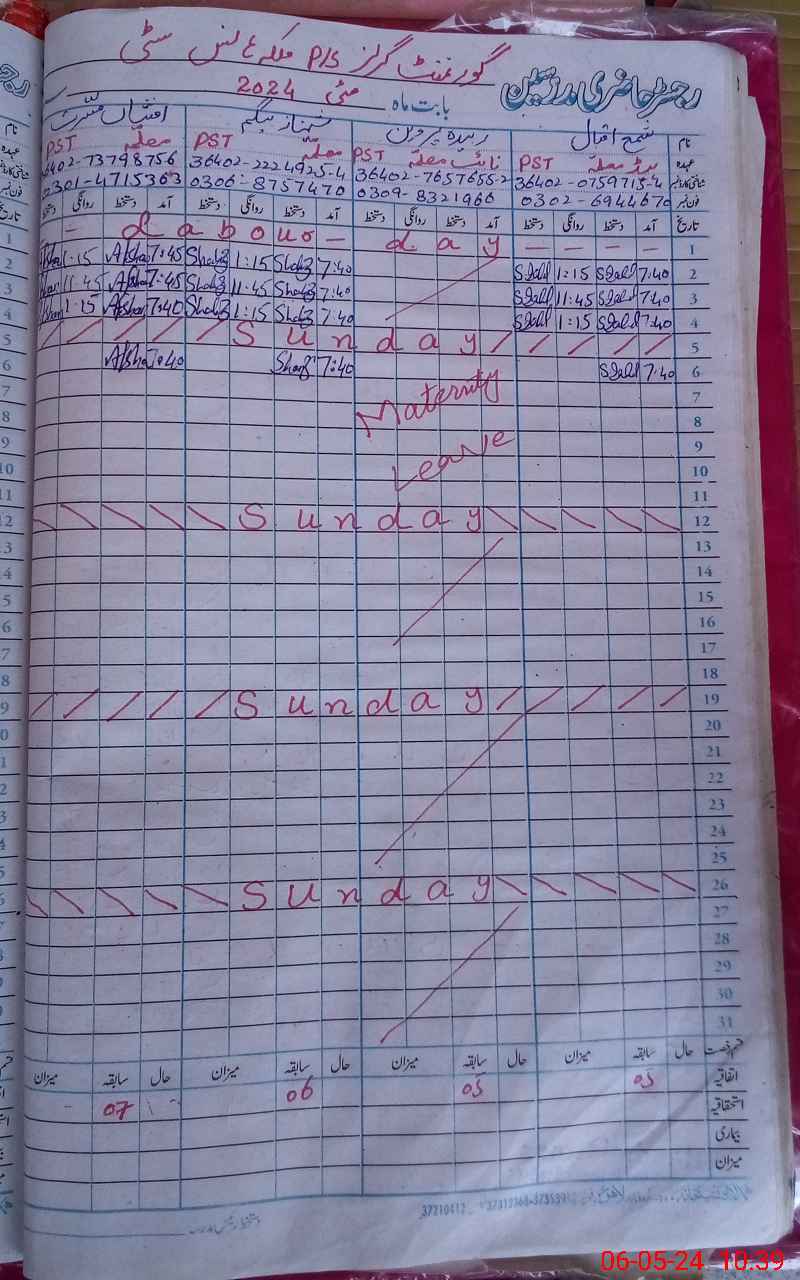 گورنمنٹ گرلز P/S ملکہ ہانس سٹی
رجسٹر حاضری مدرسین
بابت ماہ مئی 2024
نام شمع اقبال زبیدہ پروین شہناز بیگم افشاں مسرت
عہدہ PST ہیڈ معلمہ PST نائب معلمہ PST معلمہ PST معلمہ
شناختی کارڈ نمبر 36402-0759713-4 36402-7657655-2 36402-2224925-4 6402-73798756
فون نمبر 0302-6944670 0309-8321966 0306-8757470 0301-4715363
تاریخ آمد دستخط روانگی دستخط آمد دستخط روانگی دستخط آمد دستخط روانگی دستخط آمد دستخط روانگی دستخط
1 - d a b o u o - d a y - - - - 1
2 1:15 7:45 1:15 7:40 1:15 7:40 2
3 11:45 7:45 11:45 7:40 11:45 7:40 3
4 1:15 7:40 1:15 7:40 1:15 7:40 4
5 S u n d a y 5
6 Afsha 7:40 7:40 7:40 6
7 Maternity 7
8 8
9 Leave 9
10 10
11 11
12 S u n d a y 12
13 13
14
15
16
17
18
19 S u n d a y 19
20
21
22
23
24
25
26 S u n d a y 26
27
28
29
30
31
قسم رخصت حال سابقہ میزان حال سابقہ میزان حال سابقہ میزان حال سابقہ میزان
اتفاقیہ 05 05 06 07
استحقاقیہ
بیماری
میزان
37210412
06-05-24 10:39